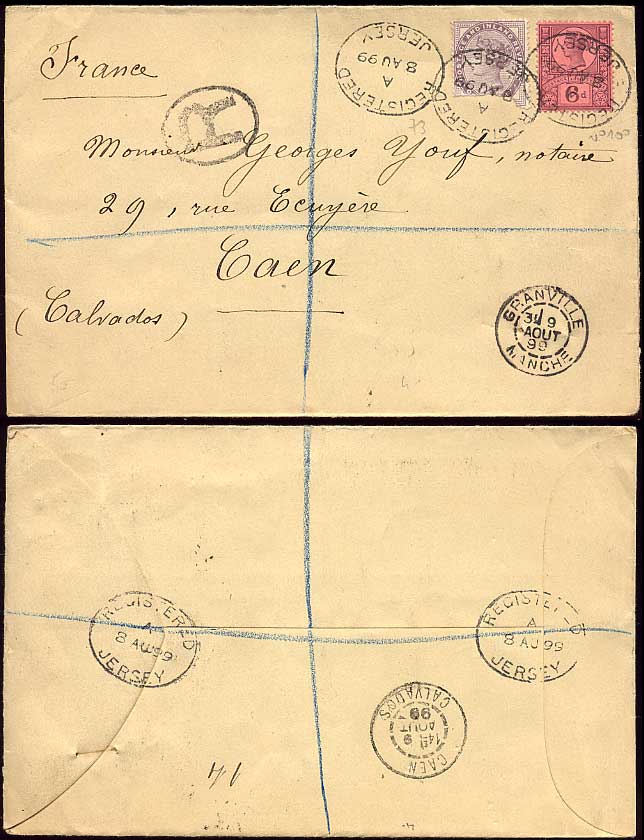 France
REGISTERED
A
8 AU 99
JERSEY
REGISTERED
A
8 AU 99
JERSEY
6d
R
Monsieur Georges Youf, notaire
29, rue Ecuyère
Caen
(Calvados)
GRANVILLE
9
AOUT
99
MANCHE
REGISTERED
A
8 AU 99
JERSEY
REGISTERED
A
8 AU 99
JERSEY
CAEN
9
AOUT
99
CALVADOS
14